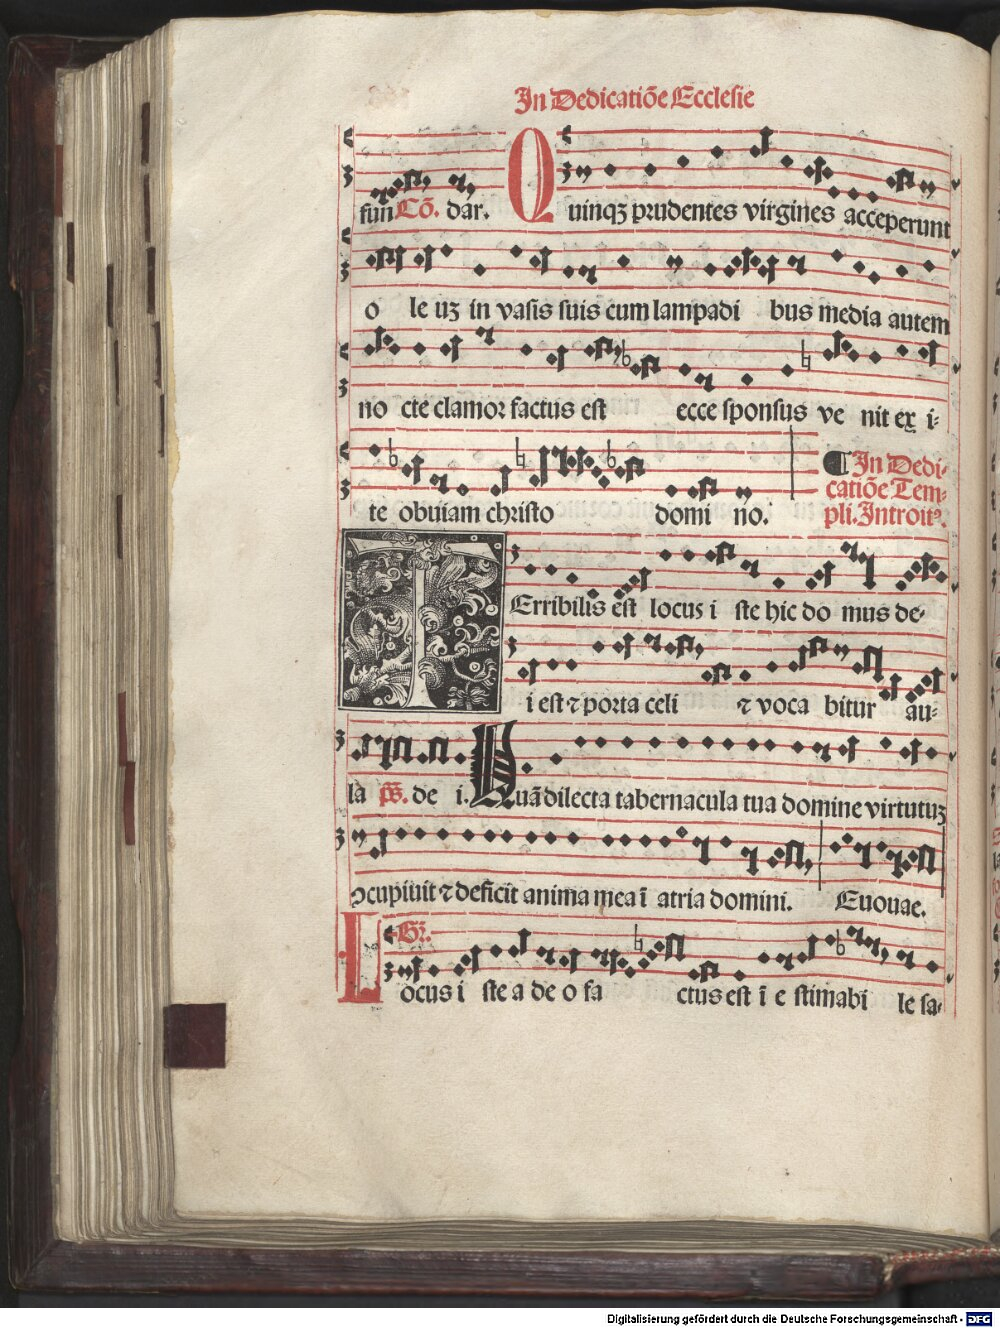 In Dedicatiōe Ecclesie
fun Cō. dar. Quinqꝫ prudentes virgines acceperunt
o le uꝫ in vasis suis cum lampadi bus media autem
no cte clamoꝛ factus est ecce sponsus ve nit ex i-
te obuiam christo domi no. ¶ In Dedi-
catiōe Tem-
pli. Introitꝰ.
TErribilis est locus i ste hic do mus de-
i est ⁊ porta celi ⁊ voca bitur au-
la p̄s. de i. Quā dilecta tabernacula tua domine virtutuꝫ
ↄcupiuit ⁊ deficit anima mea ī atria domini. Euouae.
Gr̄.
Locus i ste a de o fa ctus est ī e stimabi le sa-
Digitalisierung gefördert durch die Deutsche Forschungsgemeinschaft - DFG